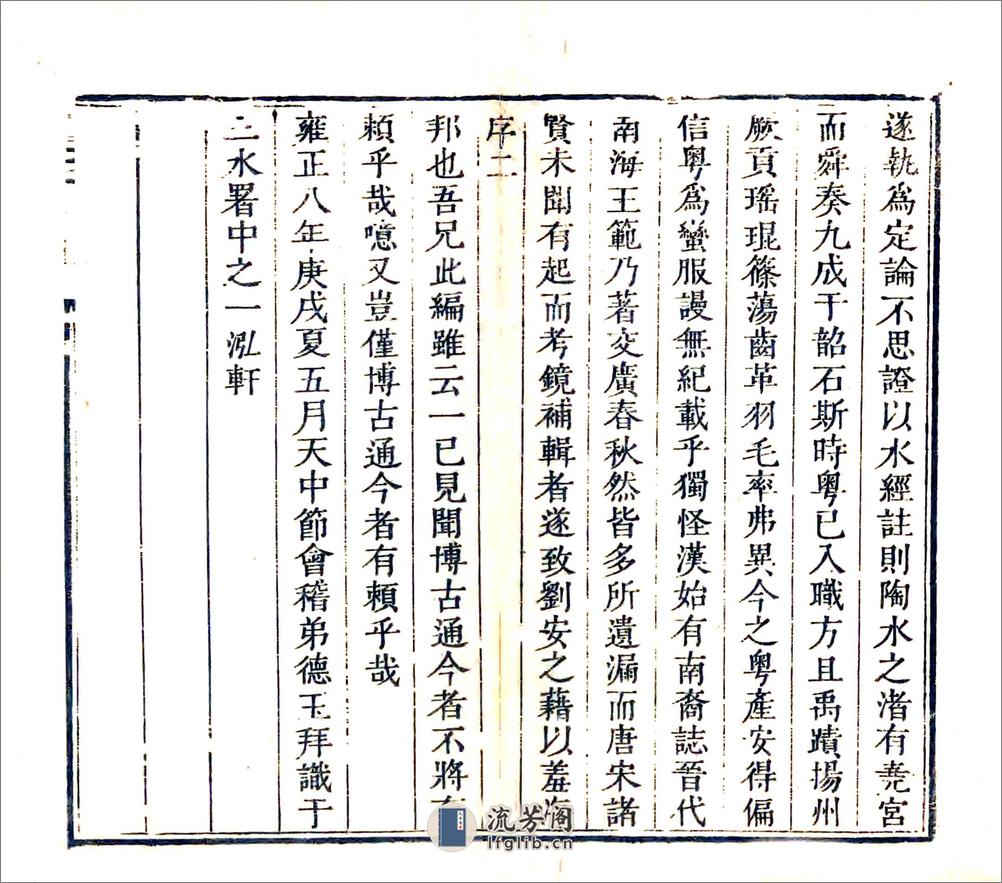 遂執爲定論不思證以水經註則陶水之渚有堯宮
而舜奏九成于韶石斯時粤已入職方且禹蹟揚州
厥貢瑤琨篠蕩齒革羽毛率弗異今之粤產安得偏
信粤爲蠻服謾無紀載乎獨怪漢始有南裔誌晉代
南海王範乃著交廣春秋然皆多所遺漏而唐宋諸
賢未聞有起而考鏡補輯者遂致劉安之藉以羞海
序二
邦也吾兄此編雖云一已見聞博古通今者不將有
賴乎哉噫又豈僅博古通今者有賴乎哉
雍正八年庚戌夏五月天中節會稽弟德玉拜識于
三水署中之一泓軒
流芳阁
lfglib.cn